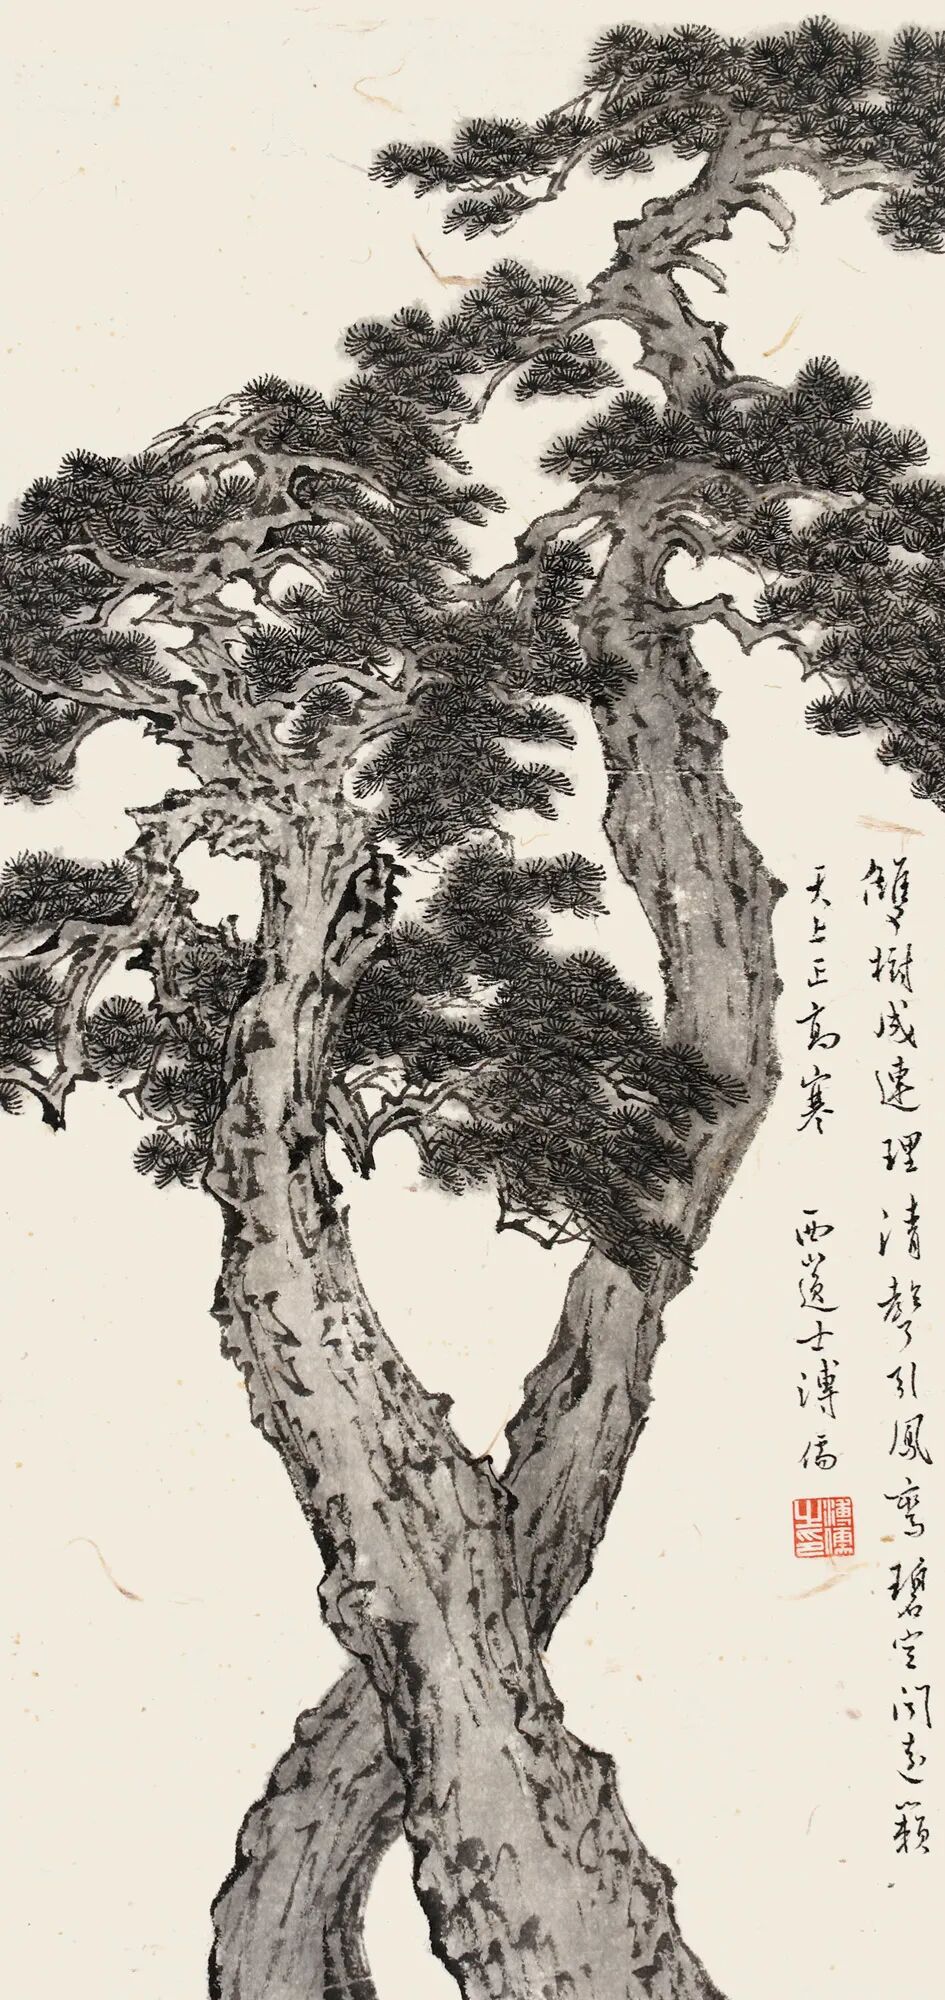 雙樹成連理清聲引鳳鸞碧空聞遠籟
天上正高寒 西山逸士溥儒
溥儒之印